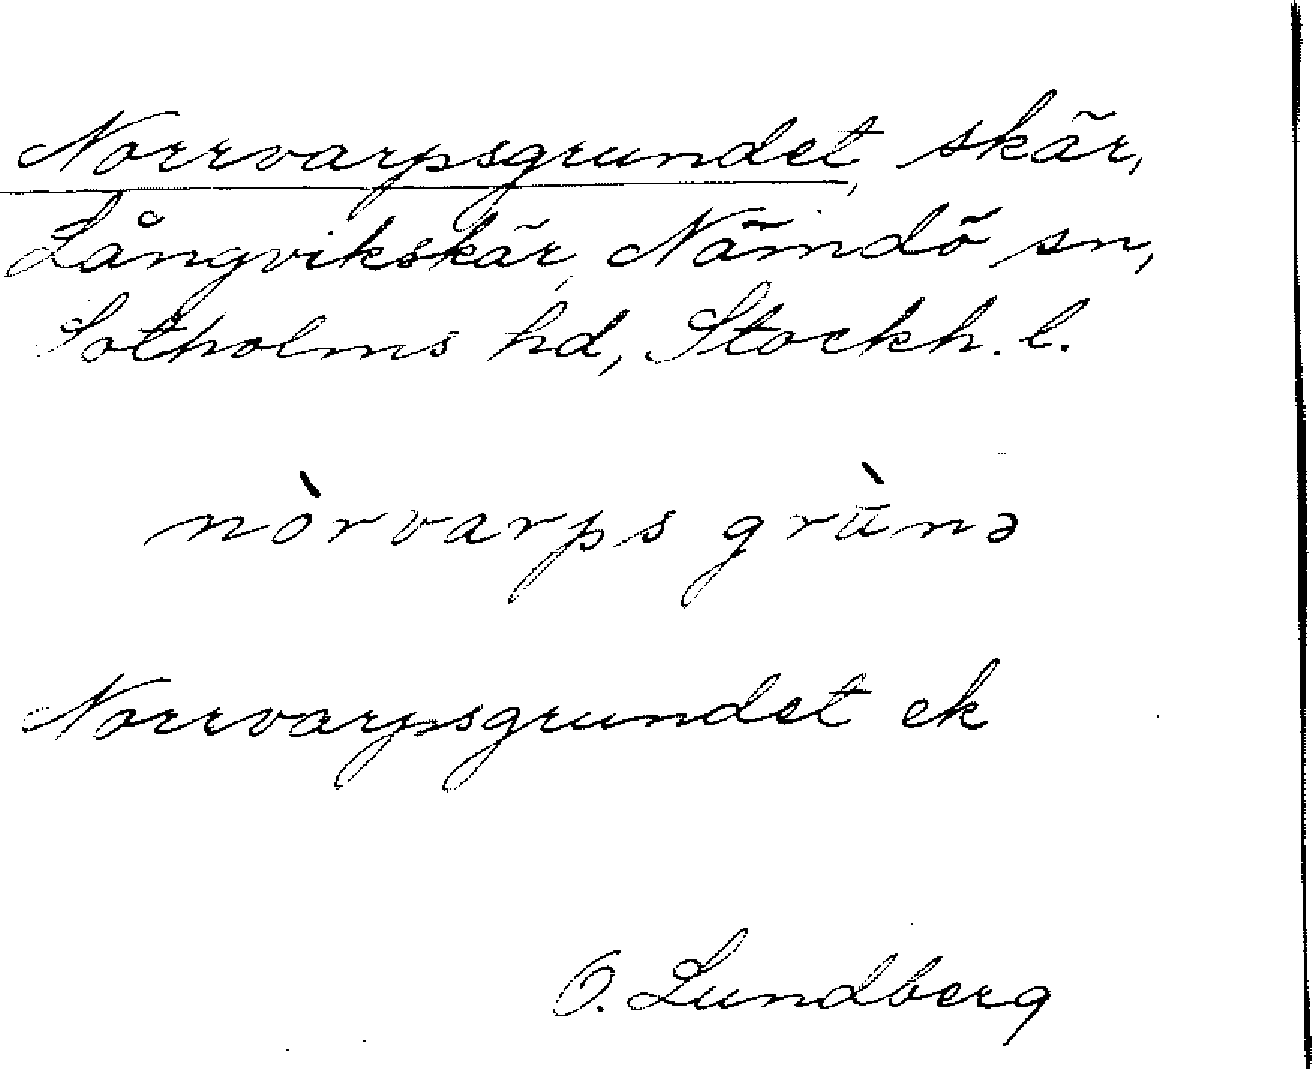 Norrvarpsgrundet, skär,
Långvikskär, Nämdö sn,
Sotholms hd, Stockh. l.
nòrvarps grùnə
Norrvarpsgrundet ek
O. Lundberg